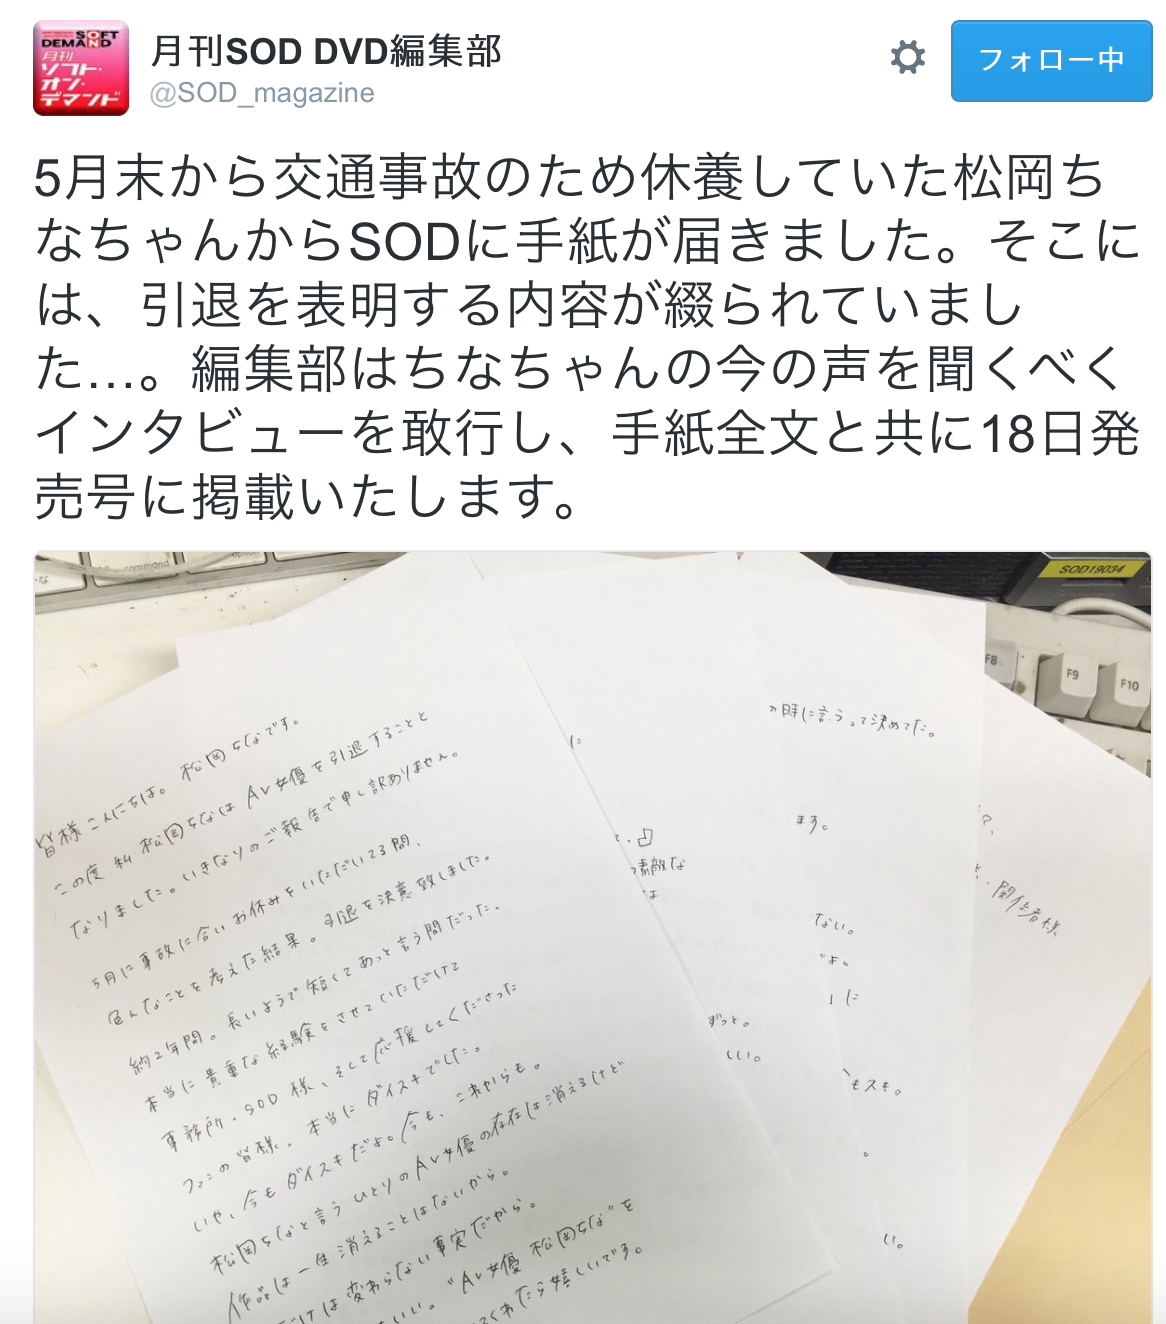 SOFT
DEMAND
月刊
ソフト・
オン・
デマンド
月刊SOD DVD編集部
@SOD_magazine
フォロー中
5月末から交通事故のため休養していた松岡ち
なちゃんからSODに手紙が届きました。そこに
は、引退を表明する内容が綴られていまし
た…。編集部はちなちゃんの今の声を聞くべく
インタビューを敢行し、手紙全文と共に18日発
売号に掲載いたします。
command
option
SOD19034
F8
F9
F10
皆様こんにちは。松岡ちなです。
この度私松岡ちなはAV女優を引退することと
なりました。いきなりのご報告で申し訳ありません。
5月に事故に合いお休みをいただいてる間、
色んなことを考えた結果。引退を決意致しました。
約2年間。長いようで短くてあっと言う間だった、
本当に貴重な経験をさせていただけて
事務所・SOD様、そして応援してくださった
ファンの皆様。本当にダイスキでした。
いや、今もダイスキだよ。今も、これからも。
松岡ちなと言うひとりのAV女優の存在は消えるけど
作品は一生消えることはないから。
だけは変わらない事実だから。
いい。"AV女優 松岡ちな"を
てくれたら嬉しいです。
に
素敵な
ずっと。
しい。
の時に言うって決めてた。
ます。
ない。
よ。
した
もスキ。
い。
・関係者様